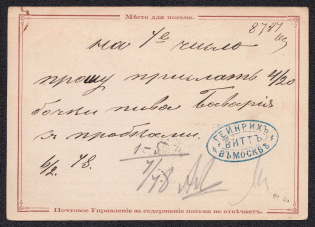 Мѣсто для письма.
8787
на 7е число
прошу прислать 4/20
бочки пива Баварія
съ пробками.
6/2 78.
ГЕЙНРИХЪ
ВИТТЪ
ВЪ МОСКВѢ
7/78
Почтовое Управленіе за содержаніе письма не отвѣчаетъ.